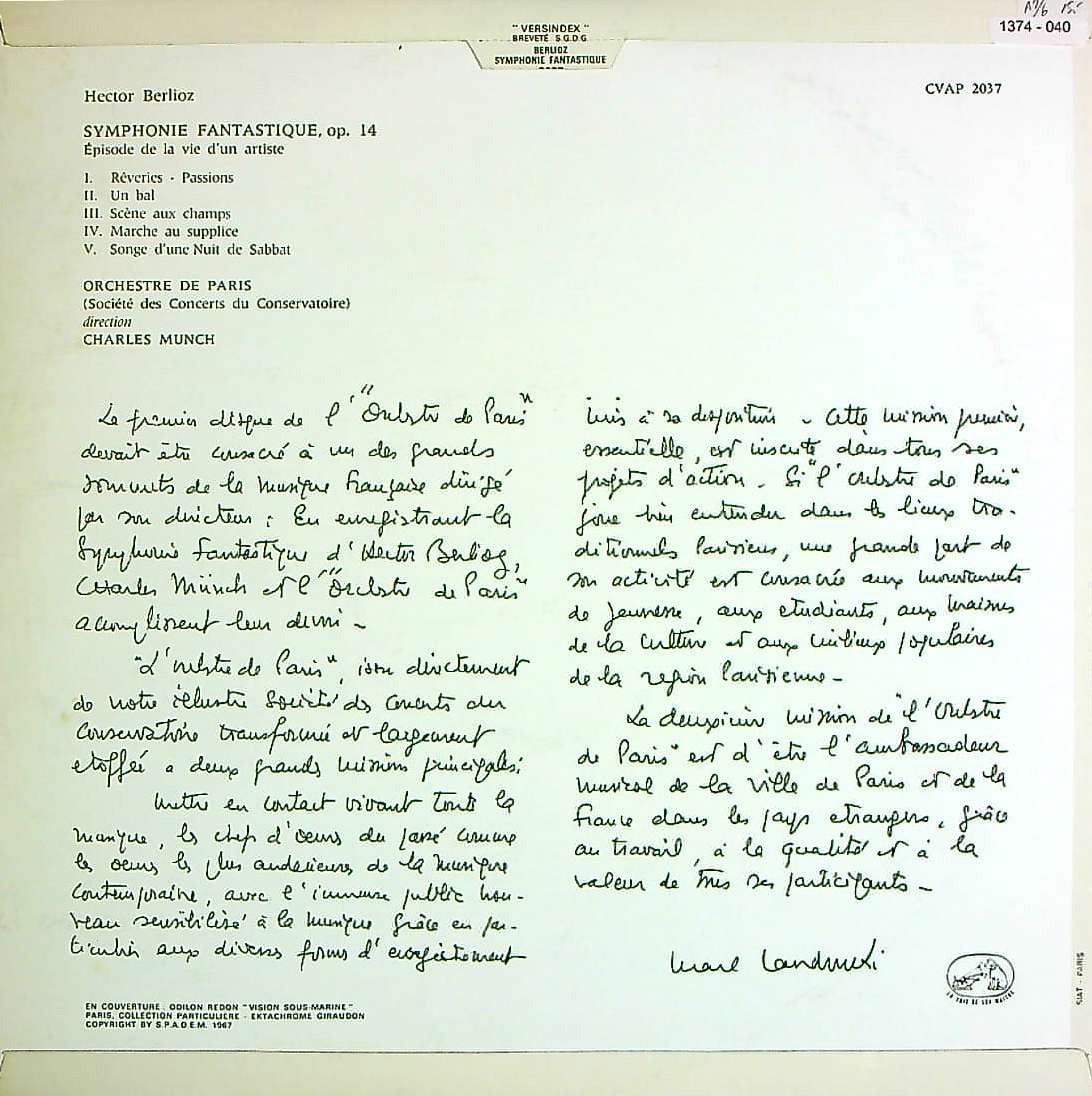 " VERSINDEX "
BREVETÉ S.G.D.G.
BERLIOZ
SYMPHONIE FANTASTIQUE
1374 - 040
CVAP 2037
Hector Berlioz
SYMPHONIE FANTASTIQUE, op. 14
Épisode de la vie d'un artiste
I. Rêveries - Passions
II. Un bal
III. Scène aux champs
IV. Marche au supplice
V. Songe d'une Nuit de Sabbat
ORCHESTRE DE PARIS
(Société des Concerts du Conservatoire)
direction
CHARLES MUNCH
Le premier disque de l'"Orchestre de Paris"
devait être consacré à un des grands
sommets de la musique française dirigé
par son directeur : En enregistrant la
Symphonie Fantastique d'Hector Berlioz,
Charles Münch et l'"Orchestre de Paris"
accomplissent leur devoir -
"L'orchestre de Paris", issu directement
de notre illustre Société des Concerts du
Conservatoire transformée et largement
etoffée a deux grandes missions principales:
Mettre en contact vivant toute la
musique, les chefs d'oeuvres du passé comme
les oeuvres les plus audacieuses de la musique
contemporaine, avec l'immense public nou-
veau sensibilisé à la musique grâce en par-
ticulier aux diverses formes d'enregistrement
mis à sa disposition - Cette mission première,
essentielle, est inscrite dans tous ses
projets d'action - Si "l'orchestre de Paris"
joue bien entendu dans les lieux tra-
ditionnels Parisiens, une grande part de
son activité est consacrée aux mouvements
de jeunesse, aux etudiants, aux maisons
de la culture et aux milieux populaires
de la region Parisienne -
La deuxième mission de "l'Orchestre
de Paris" est d'être l'ambassadeur
musical de la ville de Paris et de la
France dans les pays etrangers, grâce
au travail, à la qualité et à la
valeur de tous ses participants -
Marcel Landowski
EN COUVERTURE : ODILON REDON "VISION SOUS-MARINE"
PARIS, COLLECTION PARTICULIERE - EKTACHROME GIRAUDON
COPYRIGHT BY S.P.A.D.E.M. 1967
LA VOIX DE SON MAITRE
SIAT - PARIS